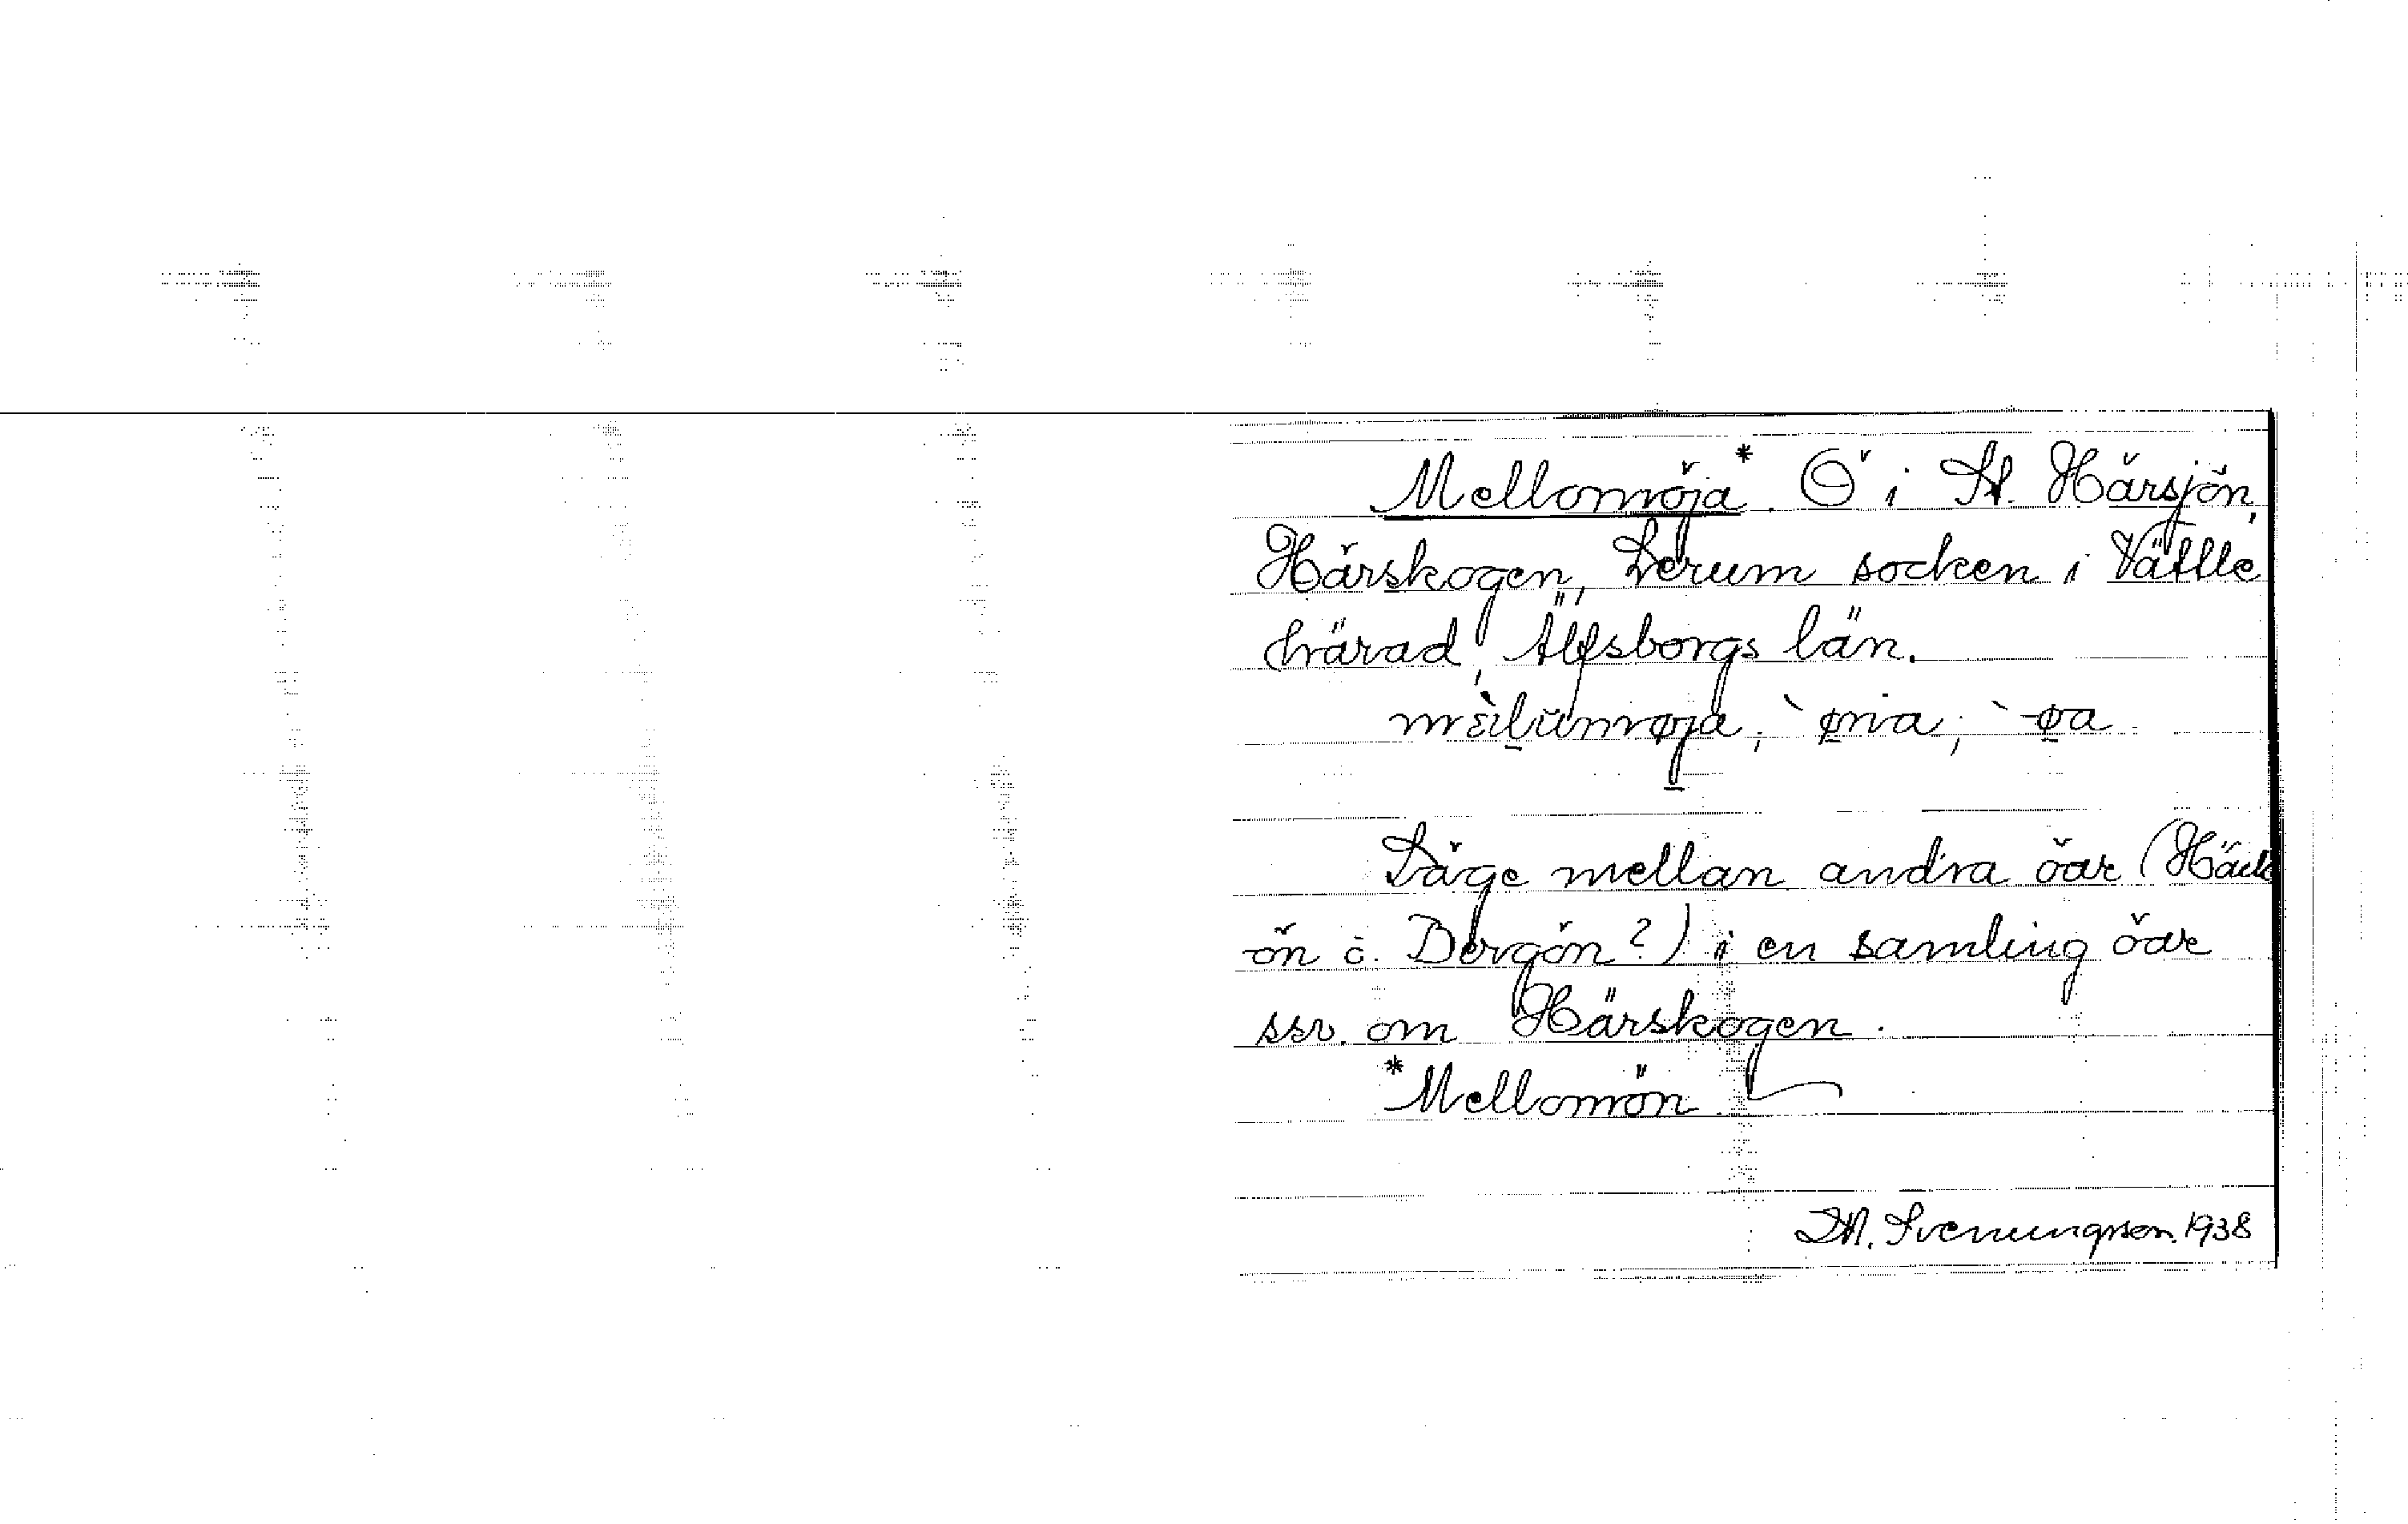 Mellomöja*. Ö i St. Härsjön,
Härskogen, Lerum socken i Vättle
härad, Älfsborgs län.
Läge mellan andra öar (Häck
ön o. Bergön?) i en samling öar
ssv. om Härskogen.
*Mellomön
D.A. Svenungsson. 1938